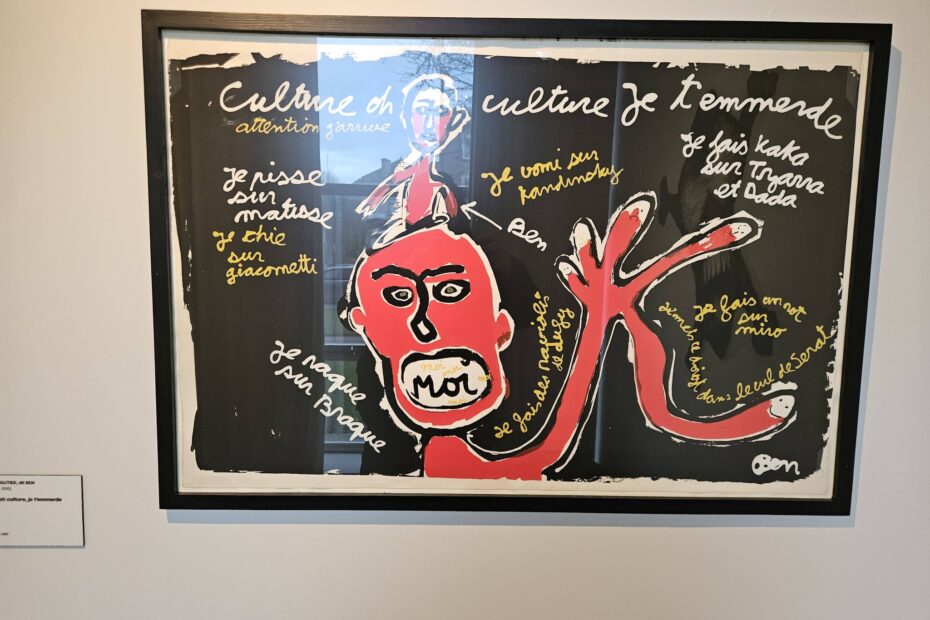 Culture oh culture Je t'emmerde
attention j'arrive
Je pisse
sur
matisse
Je chie
sur
giacometti
Je vomi sur
Kandinsky
Ben
Je fais Kaka
sur Tzarra
et Dada
Je raque
sur Braque
moi moi
Moi
moi
Je fais des raviolis
de dufy
Je fais un rot
sur
miro
Je mets le doigt dans le cul de Serat
Ben
dit BEN
oh culture, je t'emmerde